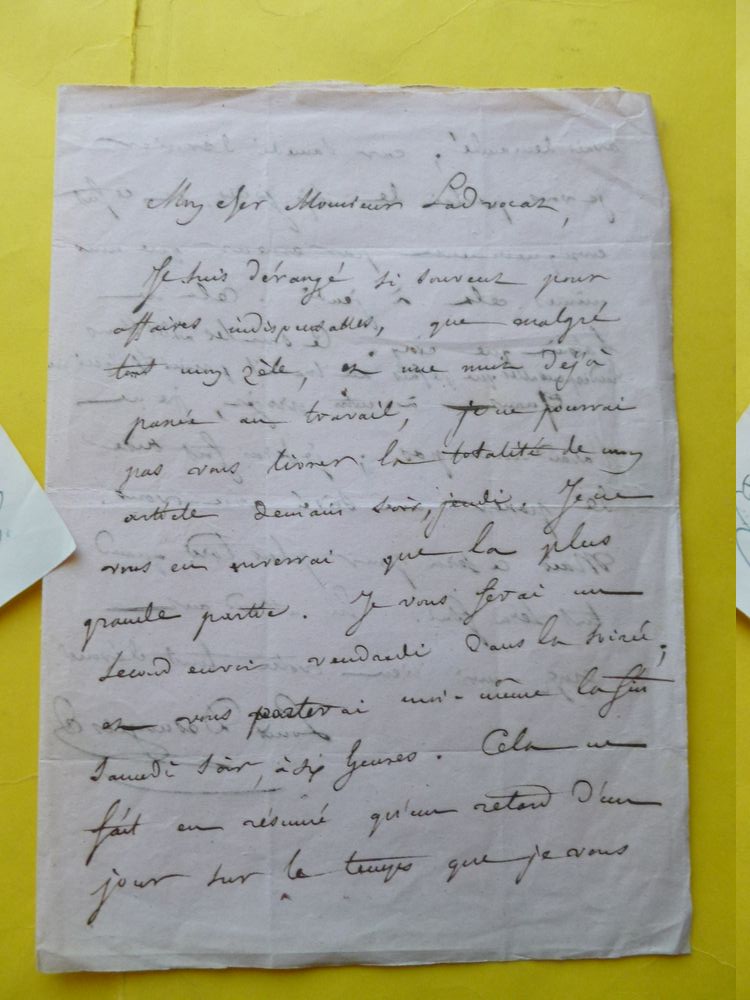 Mon cher Monsieur Ladvocat,
Je suis dérangé si souvent pour
affaires indispensables, que malgré
tout mon zèle, et une nuit déjà
passée au travail, je ne pourrai
pas vous livrer la totalité de mon
article demain soir, jeudi. Je ne
vous en enverrai que la plus
grande partie. Je vous ferai un
second envoi vendredi dans la soirée;
et vous porterai moi-même la fin
samedi soir, à six heures. Cela ne
fait en résumé qu'un retard d'un
jour sur le temps que je vous